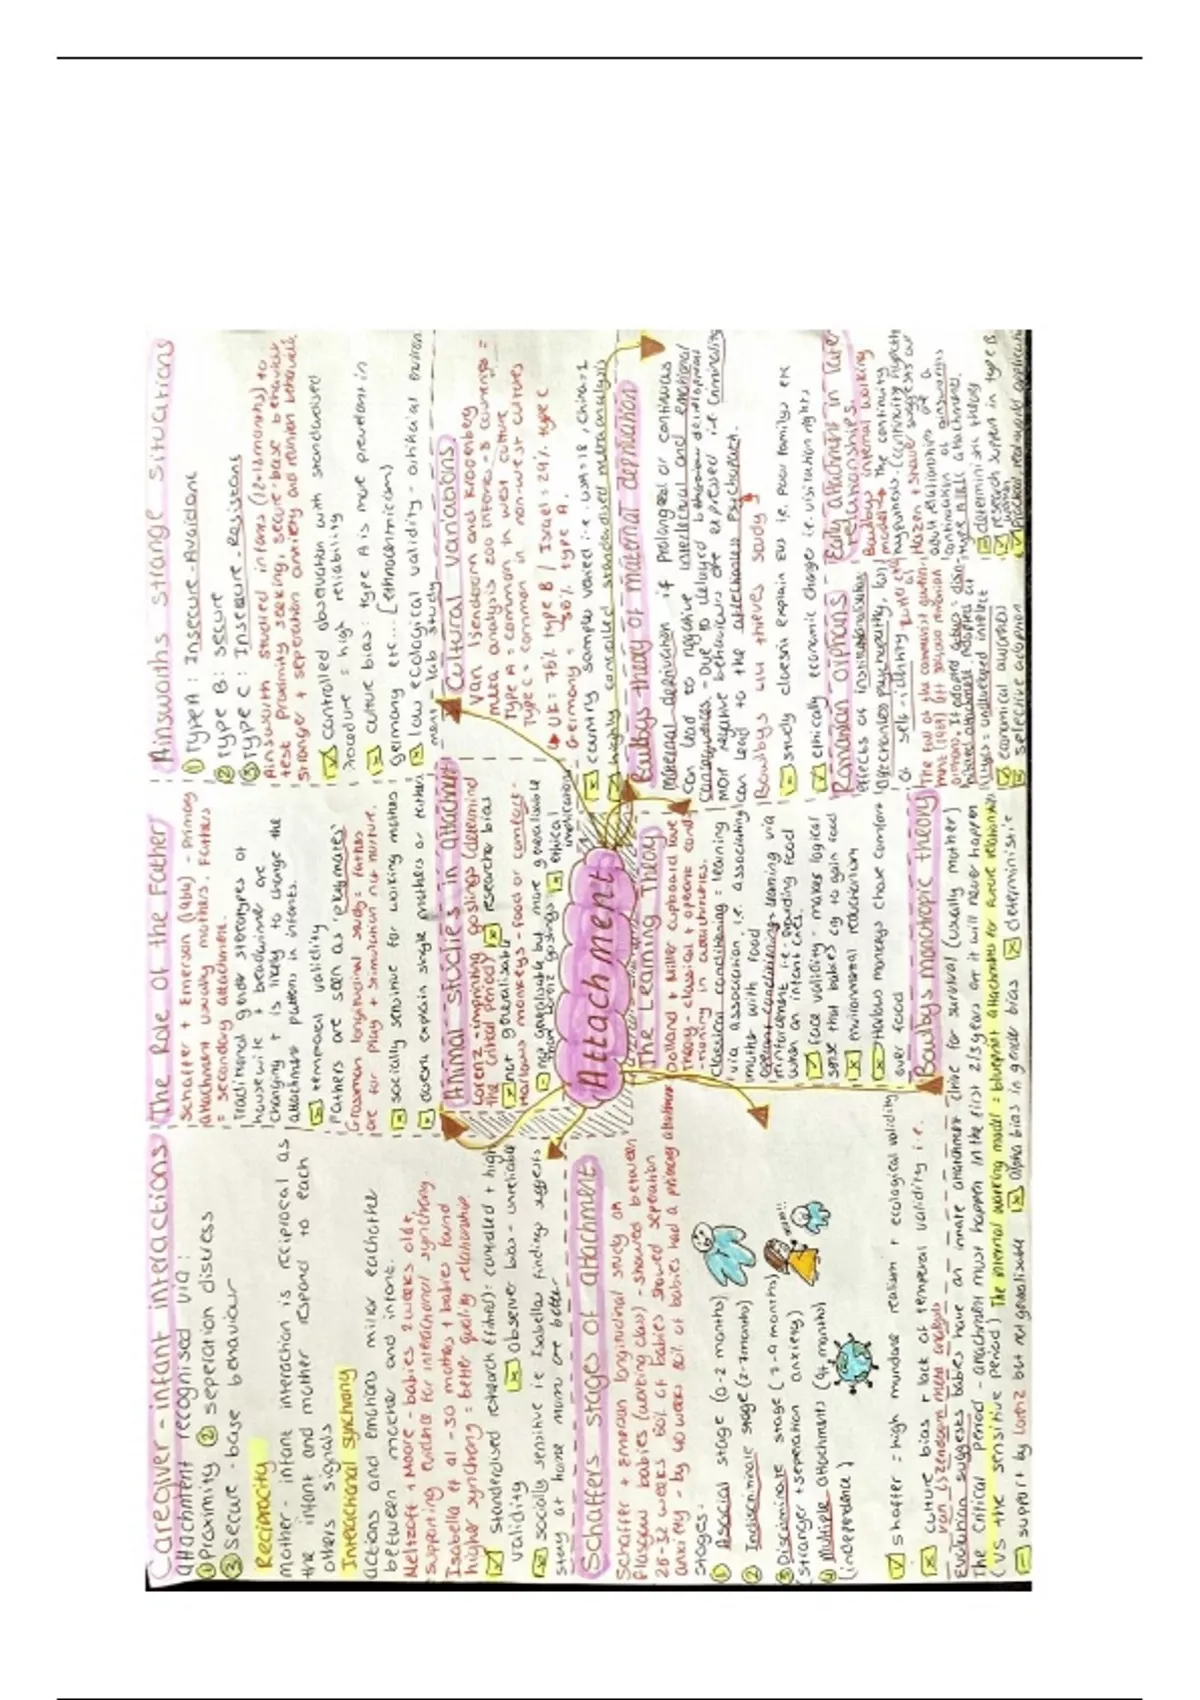 Caregiver - infant interactions
attachment recognised via:
① proximity ② seperation distress
③ secure - base behaviour
Reciprocity
mother - infant interaction is reciprocal as
the infant and mother respond to each
others signals
Interactional synchrony
actions and emotions mirror eachother
between mother and infant.
Meltzoff + Moore - babies 2 weeks old +
supporting evidence for interactional synchrony
Isabella et al - 30 mothers + babies found
higher synchrony = better quality relationship
standardised research controlled + high
validity observer bias - unreliable
socially sensitive i.e Isabella's finding suggests
stay at home mums are better
Schaffers stages of attachment
Schaffer + Emerson longitudinal study on
Glasgow babies (working class) - showed between
25-32 weeks 50% of babies showed seperation
anxiety - by 40 weeks 80% of babies had a primary attachment
stages:
① Asocial stage (0-2 months)
② Indiscriminate stage (2-7 months)
③ Discriminate stage (7-9 months)
(stranger + seperation anxiety)
④ Multiple attachments (9+ months)
(independence)
Shaffer = high mundane realism + ecological validity
culture bias + lack of temporal validity i.e.
van Ijzendoorn meta analysis
The Role of the Father
Schaffer + Emerson (1964) - primary
attachment usually mothers. Fathers
= secondary attachment.
Traditional gender stereotypes of
housewife + breadwinner are
changing + is likely to change the
attachment pattern in infants.
temporal validity
Fathers are seen as 'playmates'
Grossman longitudinal study = father
are for play + stimulation not nurture.
socially sensitive for working mothers
doesnt explain single mothers or father
Animal studies in attachment
Lorenz - imprinting goslings (determined
the critical period) researcher bias
not generalisable
Harlows monkeys - food or comfort -
ethical
implications
Attachment
The Learning Theory
Dolland + Miller cupboard love
theory - classical + operant condi
-tioning in attachments.
classical conditioning = learning
via association i.e. associating
mother with food
operant conditioning = learning via
reinforcement i.e. regarding food
when an infant cries.
face validity - makes logical
sense that babies cry to gain food
environmental reductionism
Harlows monkeys chose comfort
over food
Bowlbys monotropic theory
Evolution suggests babies have an innate attachment drive for survival (usually mother)
The critical period - attachment must happen in the first 2.5 years or it will never happen
(vs the sensitive period) The internal working model = blueprint attachments for future relationships
support by Lorenz but not generalisable alpha bias in gender bias deterministic
Ainsworths strange situations
① Type A: Insecure Avoidant
② Type B: secure
③ Type C: Insecure - Resistant
Ainsworth studied infants (12-18 months) to
test proximity seeking, secure base behaviour
stranger + seperation anxiety and reunion behaviour.
controlled observation with standardised
procedure = high reliability
culture bias: type A is more prevalent in
germany etc... (ethnocentricism)
low ecological validity - artificial environ
ment - lab study
Cultural variations
Van Ijzendoorn and Kroonberg
meta analysis 200 infants - 8 countries =
Type A = common in west culture
Type C = common in non-west cultures
UK = 75% type B / Israel = 29% type C
Germany = 30% type A.
country samples varied i.e. usa=18, china=1
highly controlled standardised meta analysis
Bowlbys theory of maternal deprivation
Maternal deprivation if prolonged or continuous
can lead to negative intellectual and emotional
consequences. - Due to delayed development
more negative behaviours are expressed i.e. criminality
can lead to the affectionless psychopath.
Bowlbys 44 thieves study
study doesnt explain EVs i.e. poor family etc
ethically economic changes i.e. visitation rights
Romanian orphans -
effects of institutionalisation
affectionless psychopathy, low IQ
or self-identity Rutter et al
The fall of the communist government
1989 left 1000s romanian
orphans. If adopted after 6months = disin-
hibited attachment. Adopted at
= undeveloped intellect
economical changes
selective adoption
Early attachment in later
relationships.
Bowlbys internal working
model → the continuity
hypothesis.
Hazan + Shaver suggests our
adult relationships are a
continuation of our infants
attachment.
deterministic theory
research support in type B
practical real world application